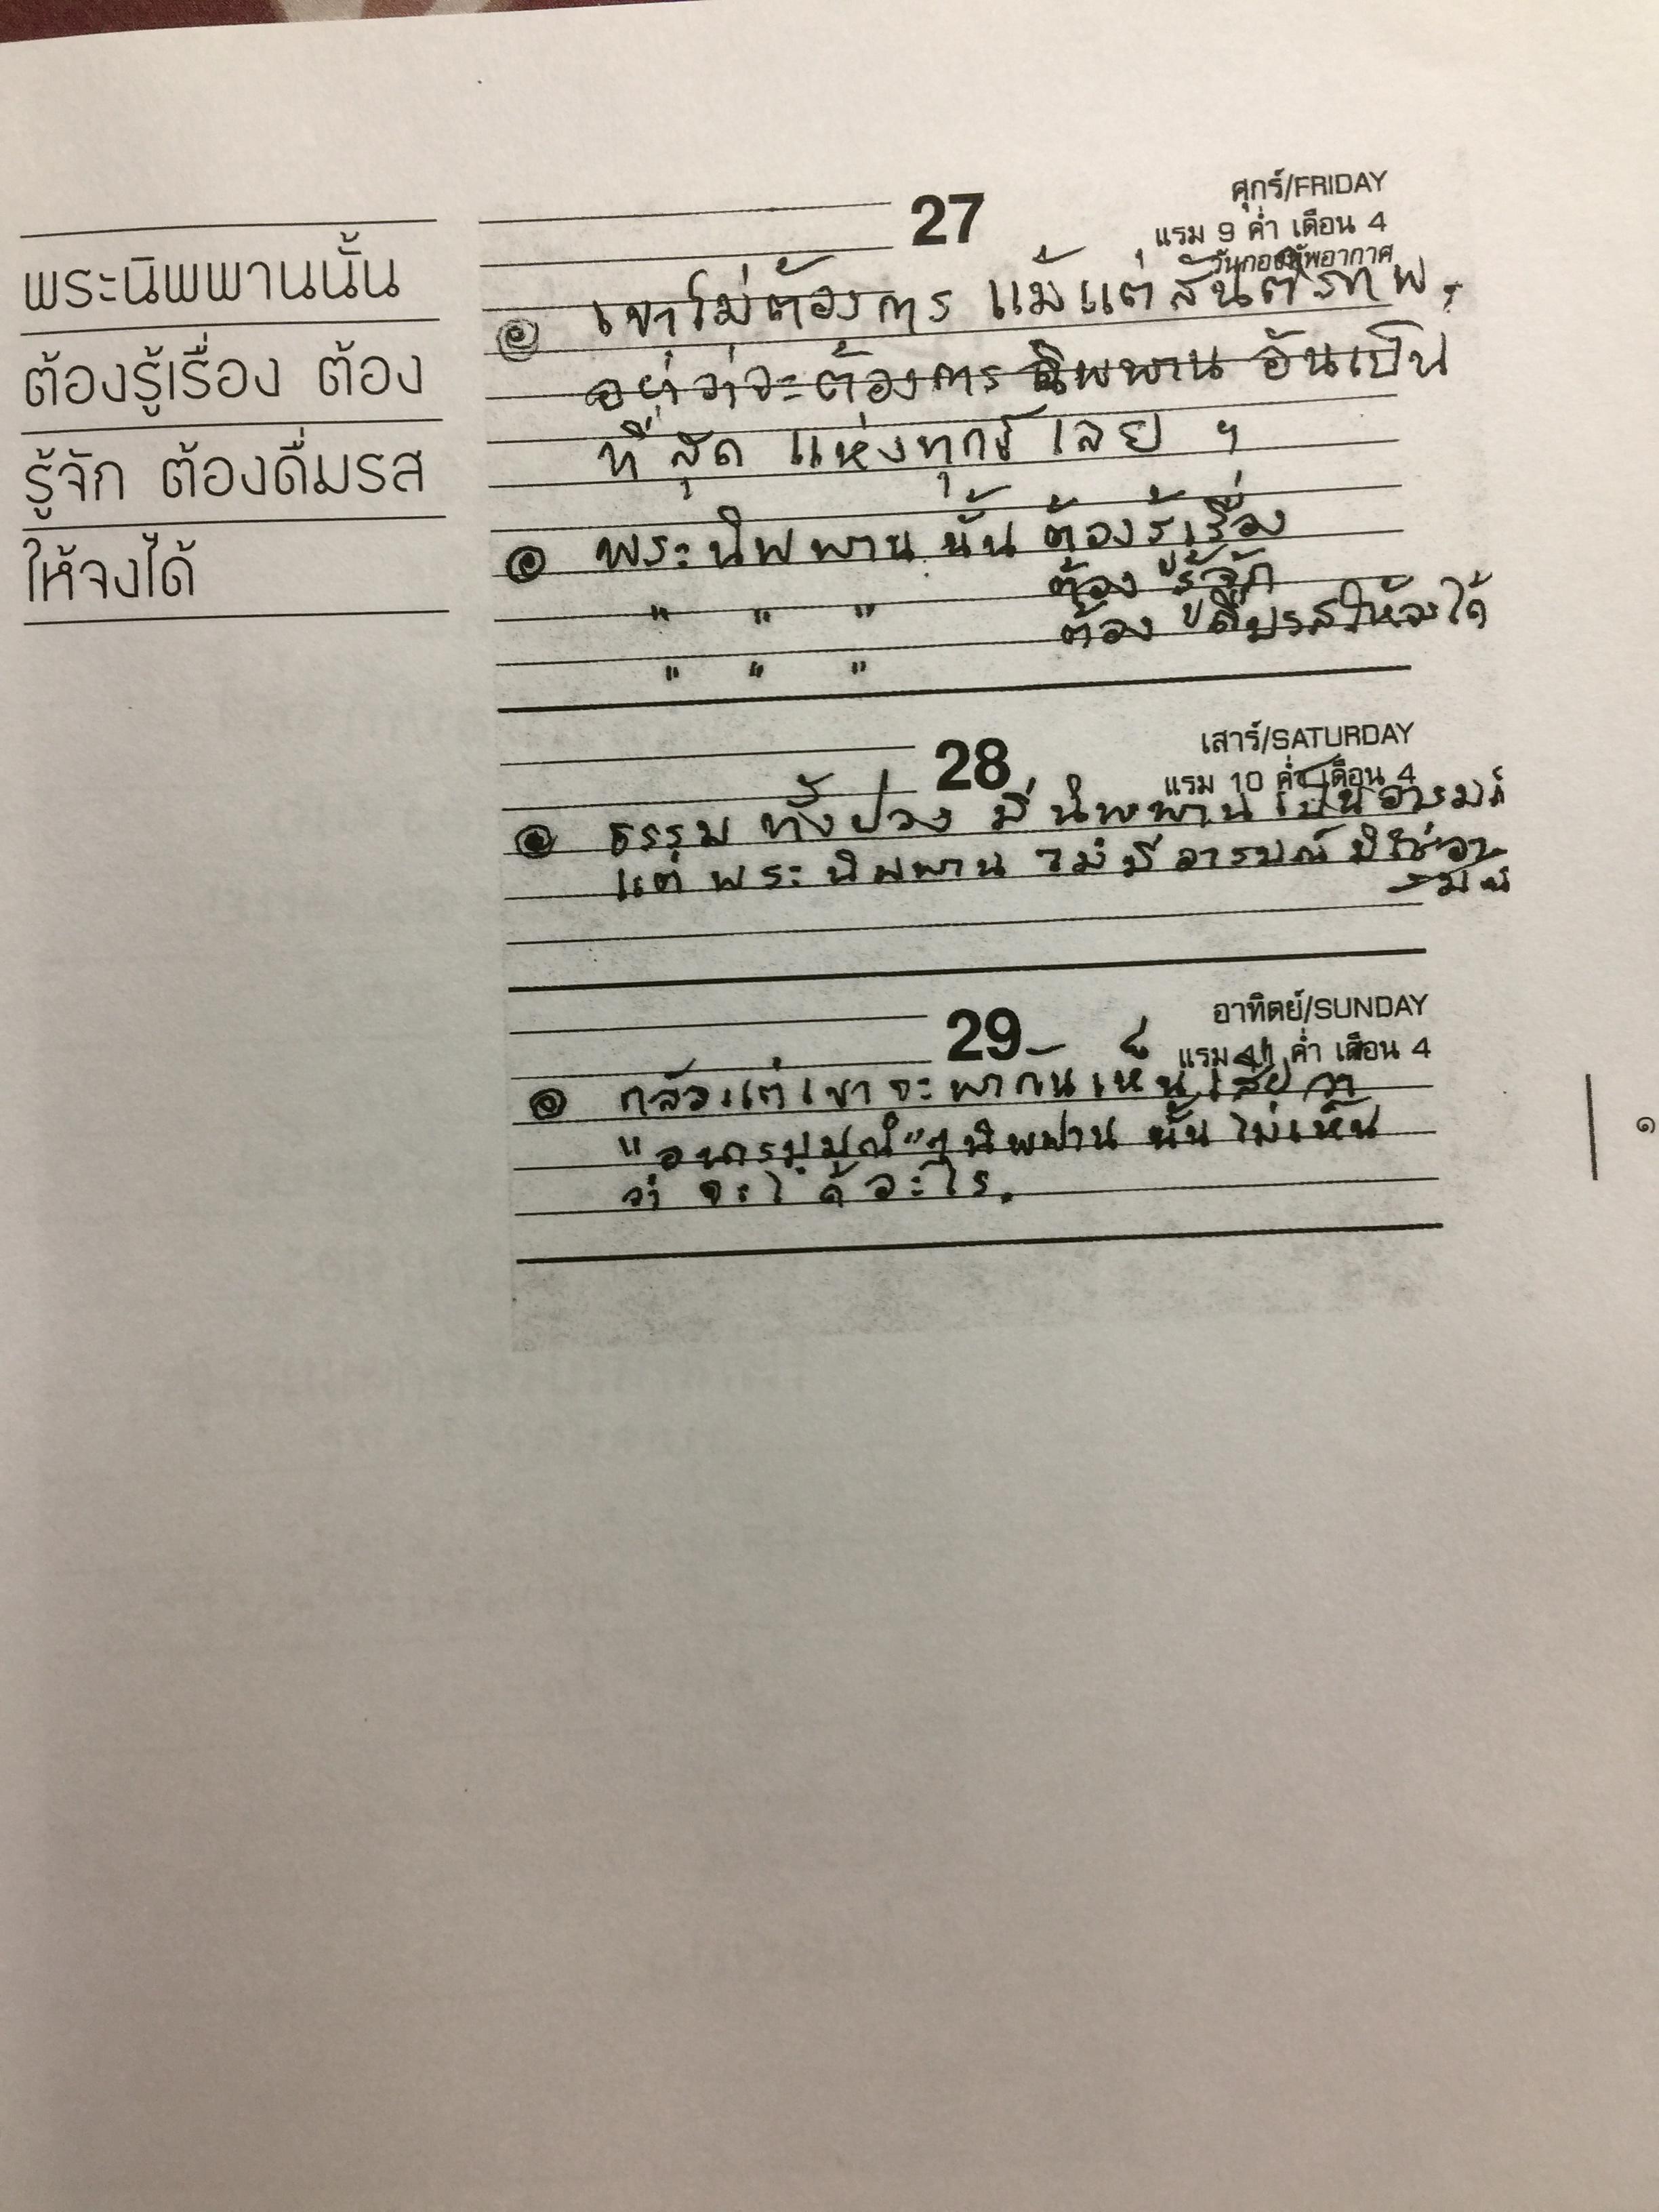 พระนิพพานนั้น
ต้องรู้เรื่อง ต้อง
รู้จัก ต้องดื่มรส
ให้จงได้
27
ศุกร์/FRIDAY
แรม 9 ค่ำ เดือน 4
วันกองทัพอากาศ
เขาไม่ต้องการ แม้แต่สันติภาพ,
อย่าว่าจะต้องการ นิพพาน อันเป็น
ที่สุด แห่งทุกข์ เลย ฯ
พระนิพพาน นั้น ต้องรู้เรื่อง
" " " ต้อง รู้จัก
" " " ต้อง ดื่มรสให้จงได้
28
เสาร์/SATURDAY
แรม 10 ค่ำ เดือน 4
ธรรม ทั้งปวง มี นิพพาน เป็นอารมณ์
แต่ พระนิพพาน ไม่มี อารมณ์ มิใช่อา-
รมณ์
29
อาทิตย์/SUNDAY
แรม 11 ค่ำ เดือน 4
กลัวแต่เขาจะพากันเห็นเสียว่า
นิพพาน นั้น ไม่เห็น
ว่า จะได้ อะไร.
๑